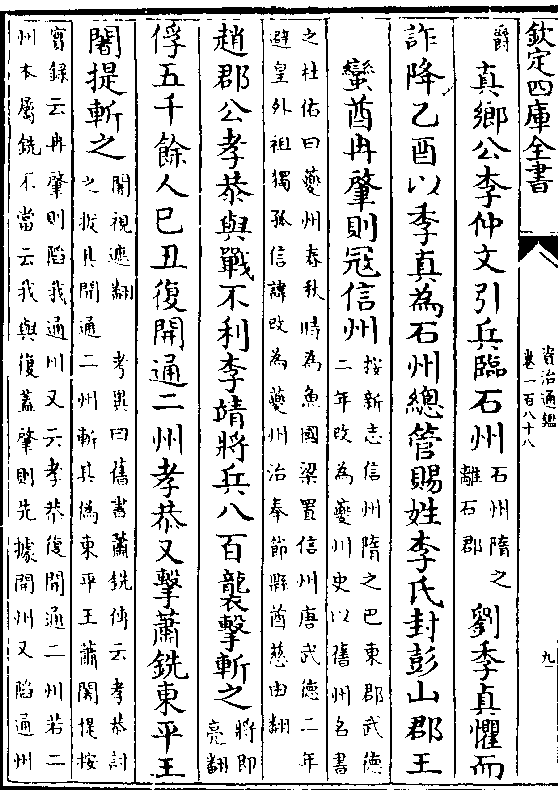 欽定四庫全書
資治通鑑
卷一百八十八
九
爵
真鄉公李仲文引兵臨石州
石州隋之
離石郡
劉季貞懼而
詐降乙酉以季真為石州總管賜姓李氏封彭山郡王
蠻酋冉肇則冦信州
按新志信州隋之巴東郡武德
二年改為夔州史以舊州名書
之杜佑曰夔州春秋時為魚國梁置信州唐武德二年
避皇外祖獨孤信諱改為夔州治奉節縣酋慈由翻
趙郡公孝恭與戰不利李靖將兵八百襲擊斬之
將即
亮翻
俘五千餘人巳丑復開通二州孝恭又擊蕭銑東平王
闍提斬之
闍視遮翻 考異曰舊書蕭銑傳云孝恭討
之拔其開通二州斬其偽東平王蕭闍提按
實錄云冉肇則陷我通川又云孝恭復開通二州若二
州本屬銑不當云我與復蓋肇則先據開州又陷通州